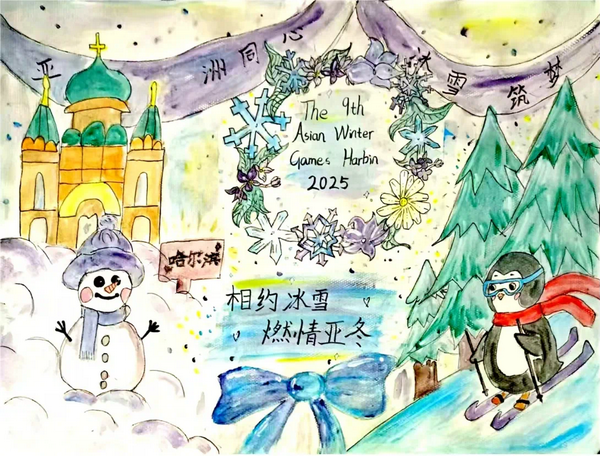 亚洲同心 冰雪筑梦
The 9th
Asian Winter
Games Harbin
2025
哈尔滨
相约冰雪
燃情亚冬